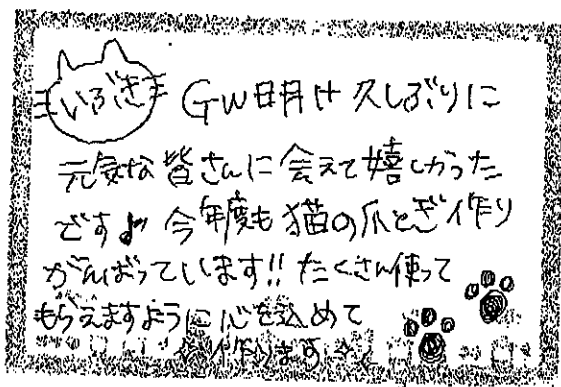 いぶき GW明け 久しぶりに
元気な皆さんに会えて嬉しかった
です♪ 今年度も猫の爪とぎ作り
がんばっています!! たくさん使って
もらえますように心を込めて
作ります